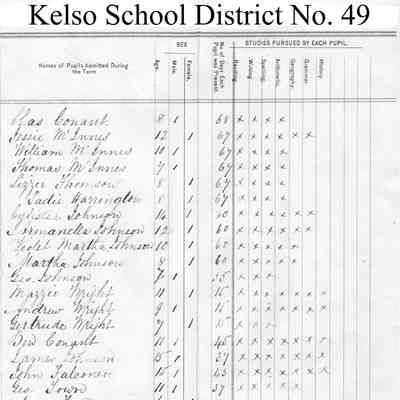 Kelso School District No. 49
SEX
STUDIES PURSUED BY EACH PUPIL.
Names of Pupils Admitted During the Term
Age.
Male.
Female.
No. of Days Each Pupil was Present.
Reading.
Writing.
Spelling.
Arithmetic.
Geography.
Grammar.
History.
Chas Conant 8 1 68 x x x x
Jessie McInnes 12 1 67 x x x x x x
William McInnes 10 1 67 x x x x
Thomas McInnes 7 1 67 x x x x
Lizzie Thomson 8 1 67 x x x x
Sadie Harrington 8 1 67 x x x x
Johnson 14 1 x x x x x x
Johnson 12 1 60 x x x x x x
Violet Martha Johnson 10 1 60 x x x x x
Martha Johnson 8 1 60 x x x x
Geo Johnson 7 1 x x x
Mazzie Wright 11 1 15 x x x x x x
Andrew Wright 9 1 15 x x x x x x x
Gertrude Wright 7 1 15 x x x
Conant 11 1 45 x x x x x x x
James Johnson 15 1 37 x x x x x x x
John Falconer 15 1 43 x x x x x x x
Geo Town 11 1 37 x x x x x